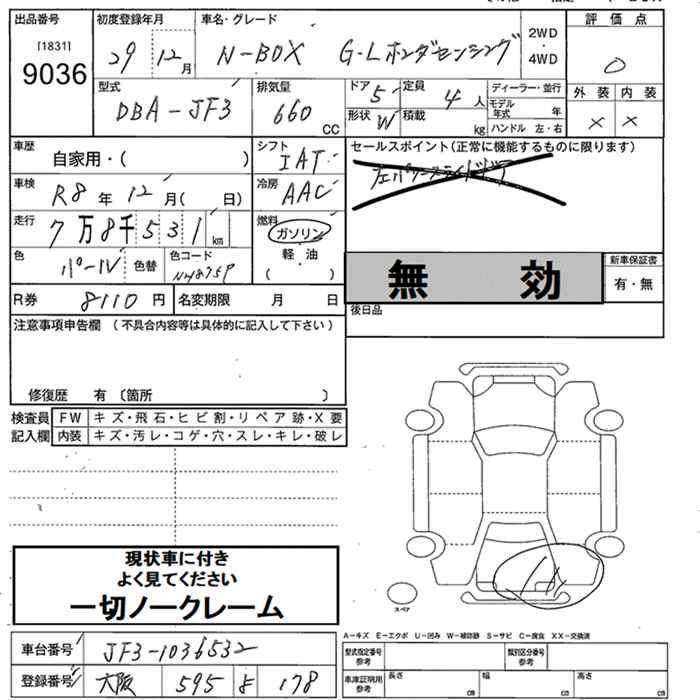 出品番号 初度登録年月 車名・グレード 評価点
[1831] 9036 29 12月 N-BOX G・Lホンダセンシング 2WD・4WD
型式 排気量 ドア 5 定員 4人 ディーラー・並行 外装 内装
DBA-JF3 660 CC 形状 W 積載 kg モデル年式 年 × ×
ハンドル 左・右
車歴 自家用・( ) シフト IAT セールスポイント(正常に機能するものに限ります)
車検 R8年 12月( 日) 冷房 AAC 左パワースライドドア
走行 7万8千531km 燃料 ガソリン
色 パール 色替 色コード NH875P 軽油 ( ) 無効 新車保証書 有・無
R券 8110円 名変期限 月 日 後日品
注意事項申告欄 (不具合内容等は具体的に記入して下さい)
修復歴 有 〔箇所 〕
検査員 FW キズ・飛石・ヒビ割・リペア跡・X要
記入欄 内装 キズ・汚レ・コゲ・穴・スレ・キレ・破レ
現状車に付き
よく見てください
一切ノークレーム
スペア
A-キズ E-エクボ U-凹み W-補修跡 S-サビ C-腐食 XX-交換済
車台番号 JF3-1036532 型式指定番号 参考 類別区分番号 参考
登録番号 大阪 595 よ 178 車庫証明用 参考 長さ cm 幅 cm 高さ cm